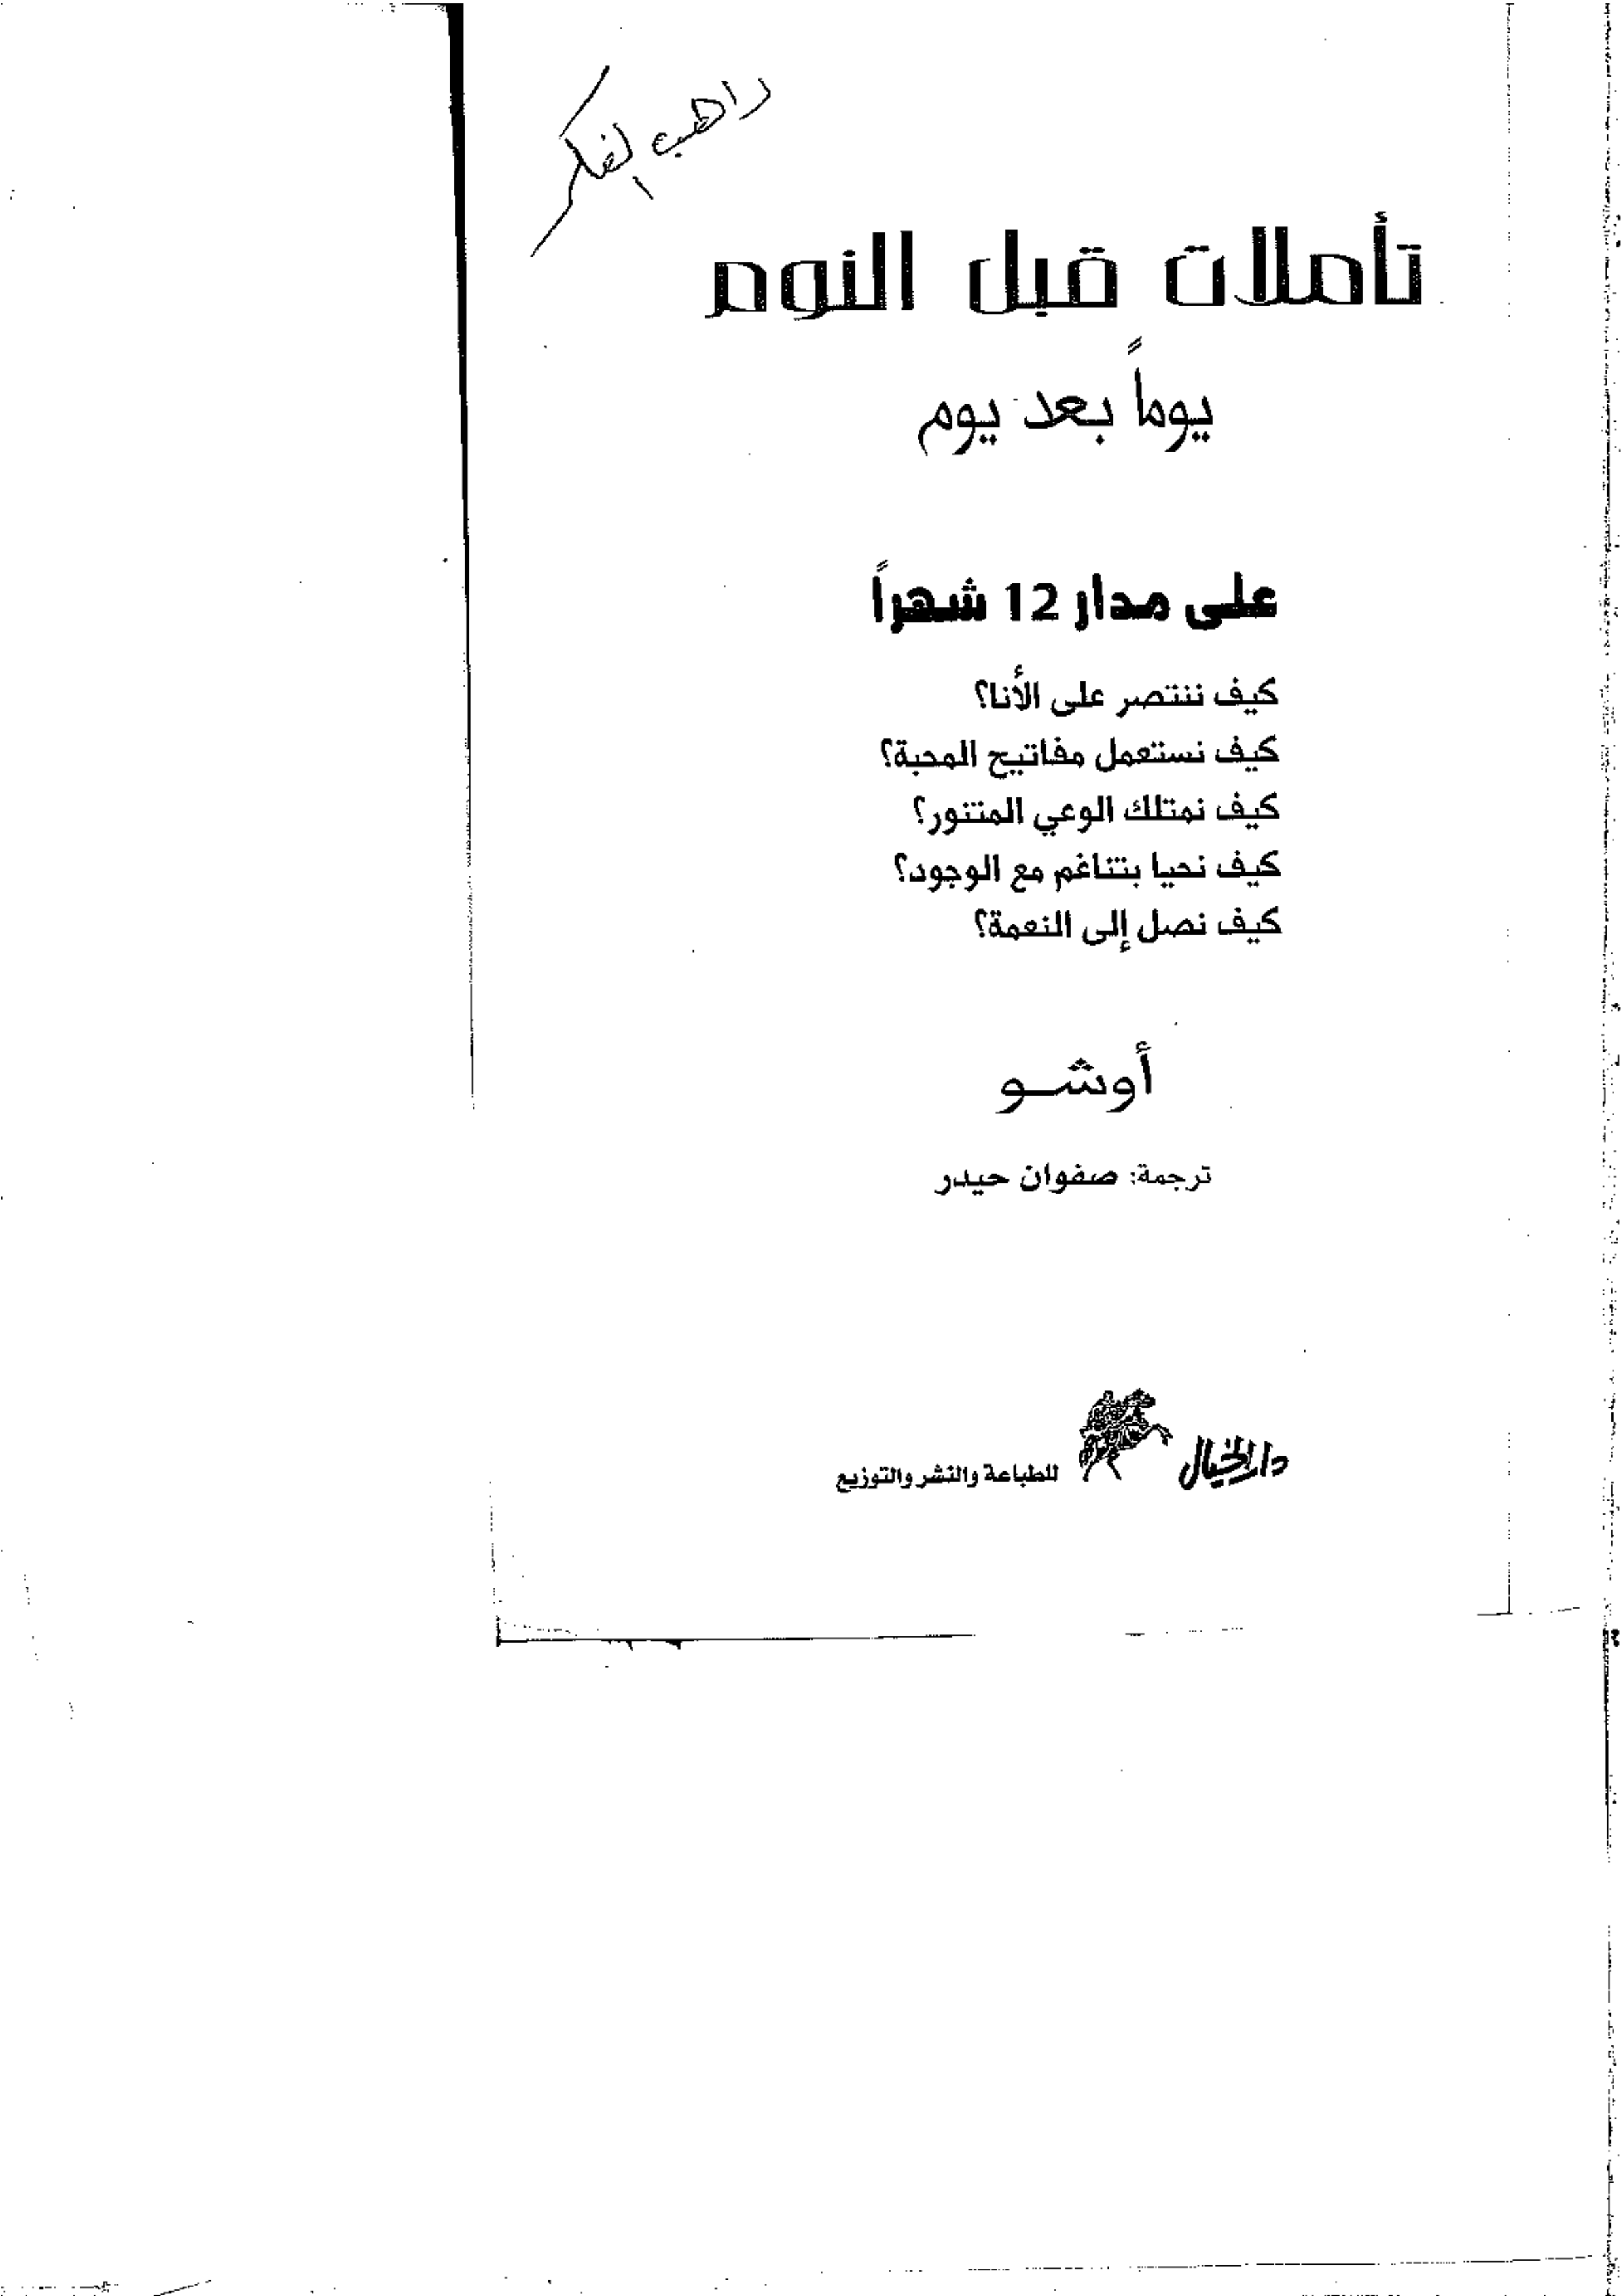 راهب الفكر
تأملات قبل النوم
يوماً بعد يوم
على مدار 12 شهراً
كيف ننتصر على الأنا؟
كيف نستعمل مفاتيح المحبة؟
كيف نمتلك الوعي المتنور؟
كيف نحيا بتناغم مع الوجود؟
كيف نصل إلى النعمة؟
أوشــو
ترجمة: صفوان حيدر
دار الخيال للطباعة والنشر والتوزيع